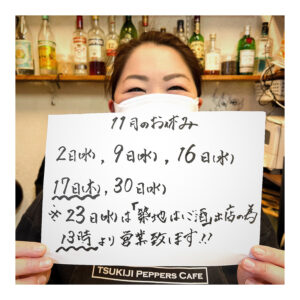 11月のお休み
2日(水), 9日(水), 16日(水)
17日(木), 30日(水)
※23日(水)は「築地はしご酒」出店の為
13時より営業致します!!
TSUKIJI PEPPERS CAFE